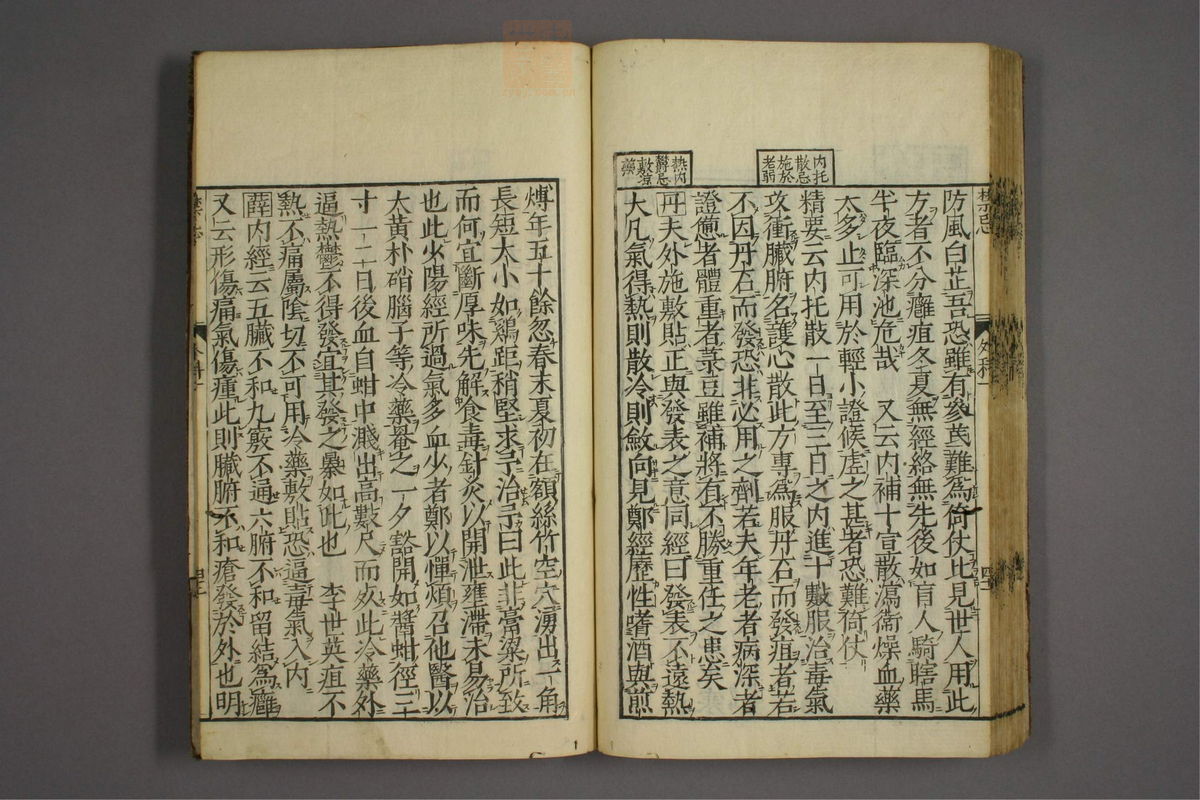 内托
散忌
施於
老弱
熱内
鬱忌
敷凉
藥
禁忌
外科一
防風白芷吾恐雖有參芪難爲倚仗比見世人用此
方者不分癰疽冬夏無經絡無先後如盲人騎瞎馬
半夜臨深池危哉　又云内補十宣散瀉衛燥血藥
太多止可用於輕小證候虛之甚者恐難倚仗
精要云内托散一日至三日之内進十數服治毒氣
攻衝臟腑名護心散此方專爲服丹石而發疽者若
不因丹石而發恐非必用之劑若夫年老者病深者
證憊者體重者菉豆雖補將有不勝重任之患矣
丹夫外施敷貼正與發表之意同經曰發表不遠熱
大凡氣得熱則散冷則斂向見鄭經歷性嗜酒與煎
煿年五十餘忽春末夏初在額絲竹空穴湧出一角
長短大小如鷄距稍堅求予治予曰此非膏粱所致
而何宜斷厚味先解食毒針灸以開泄壅滯未易治
也此少陽經所過氣多血少者鄭以憚煩召他醫以
大黃朴硝腦子等冷藥罨之一夕豁開如醬蚶徑三
寸一二日後血自蚶中濺出高數尺而死此冷藥外
逼熱鬱不得發宜其發之暴如此也　李世英疽不
熱不痛屬陰切不可用冷藥敷貼恐逼毒氣入内
薛内經云五臟不和九竅不通六腑不和留結爲癰
又云形傷痛氣傷腫此則臟腑不和瘡發於外也明